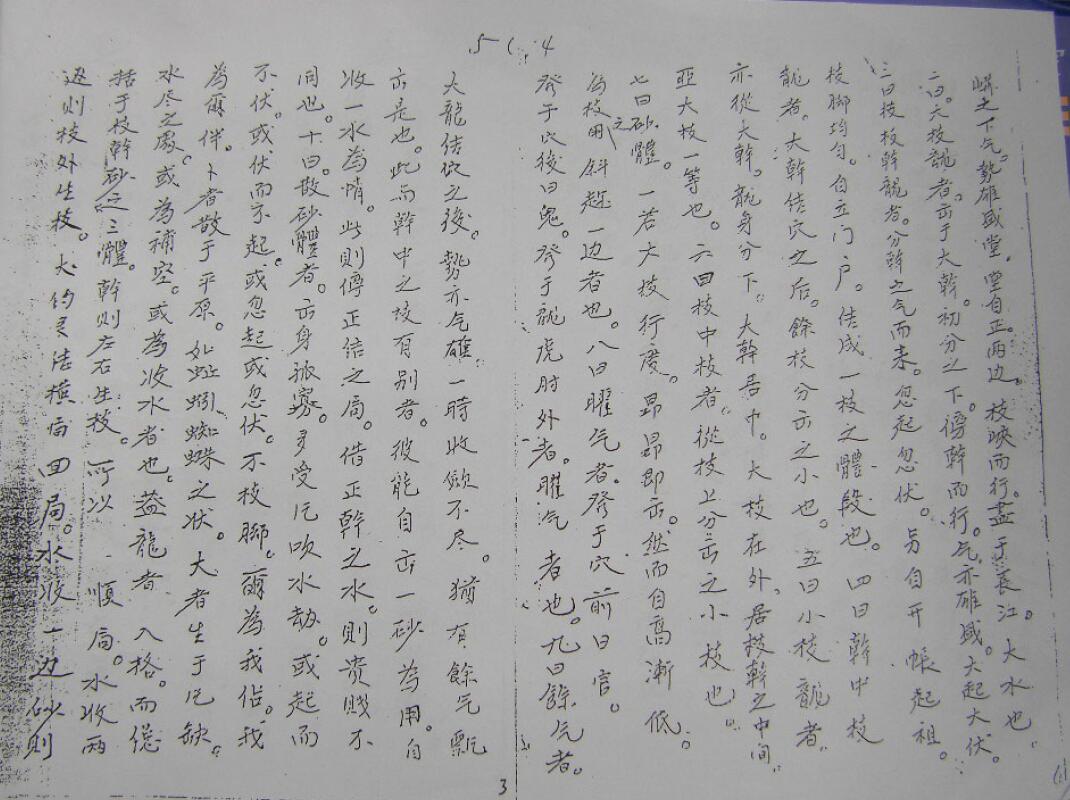 5(.4
嶂土下气。势雄盛堂，堂自正。两边。枝峡而行。盡于長江。大水也。
二曰。大枝龍者。出于大幹。初分之下。傍幹而行。气亦雄盛。大起大伏。
三曰枝枝幹龍者。分幹之气而来。忽起忽伏。另自开帳起祖。
枝脚均匀。自立门户。结成一枝之體段也。四曰幹中枝
龍者。大幹结穴之后。餘枝分出之小也。五曰小枝龍者
亦從大幹。龍身分下。大幹居中。大枝在外。居枝幹之中间。
亞大枝一等也。六曰枝中枝者。從枝上分出之小枝也。
七曰砂之體。一若大枝行度。昂昂即出。继而自高漸低。
为枝用斜趂一边者也。八曰曜气者。發于穴前曰官。
發于穴後曰鬼。發于龍虎肘外者。曜气者也。九曰餘气者。
大龍结穴之後。勢亦气雄。一時收斂不尽。猶有餘气飄
出是也。此与幹中之枝有别者。彼能自出一砂为用。自
收一水为哨。此則傳正结之局。借正幹之水。則贵賤不
同也。十曰散砂體者。出身孤寡。多受风吹水劫。或起而
不伏。或伏而不起。或忽起或忽伏。不枝脚。爾為我佔。我
為爾伴。卜者散于平原。如蚯蚓蜘蛛之状。大者生于风缺。
水尽之處。或為補空。或為收水者也。盖龍者入格。而總
括于枝幹砂之三體。幹則左右生枝。所以順局。水收两
边則枝外生枝。大约是法横局回局。水收一边砂則
3